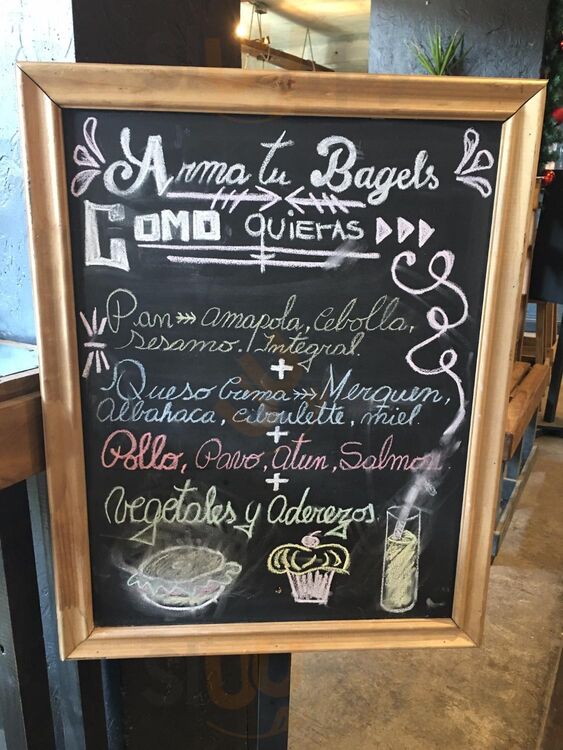 Arma tu Bagels
COMO QUIERAS
Pan Amapola, Cebolla,
Sesamo. / Integral.
+
Queso Crema Merquen,
Albahaca, Ciboulette, miel.
+
Pollo, Pavo, Atun, Salmon.
+
Vegetales y Aderezos.